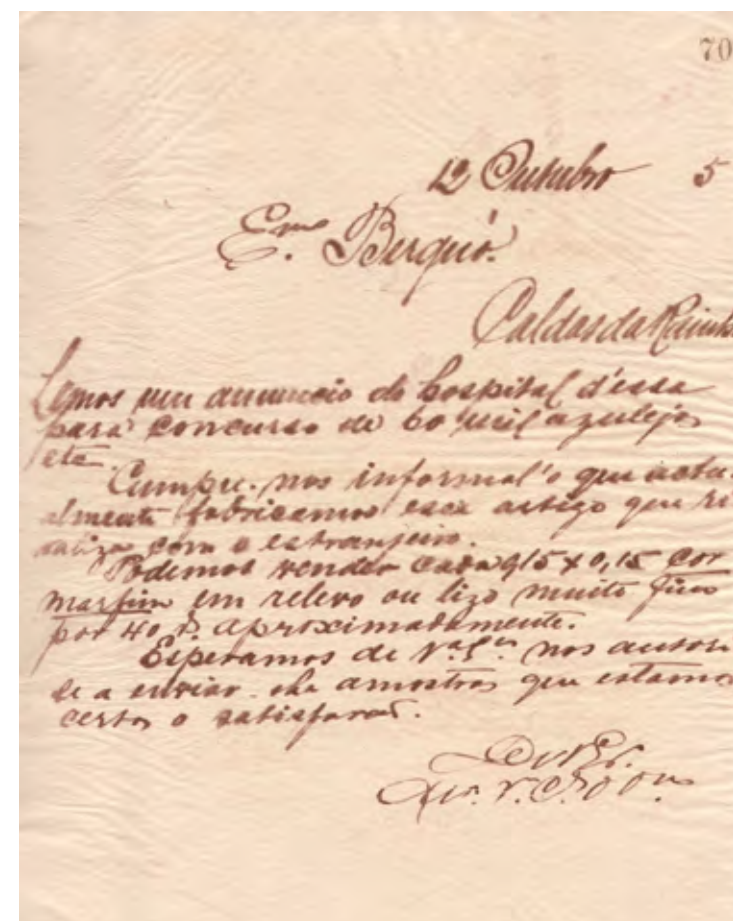 70
12 Outubro 5
Exmo Berquó.
Caldas da Rainha
Lemos um annuncio do hospital d'essa
para concurso de 60 mil azulejos
etc.
Cumpre-nos informal'o que actu-
almente fabricamos esse artigo que ri
valiza com o estranjeiro.
Podemos vender cada 0,15 x 0,15 cor
marfim em relevo ou lizo muito fino
por 40 rs. aproximadamente.
Esperamos de V.a S.a nos autori
se a enviar-lhe amostras que estamos
certos o satisfará.